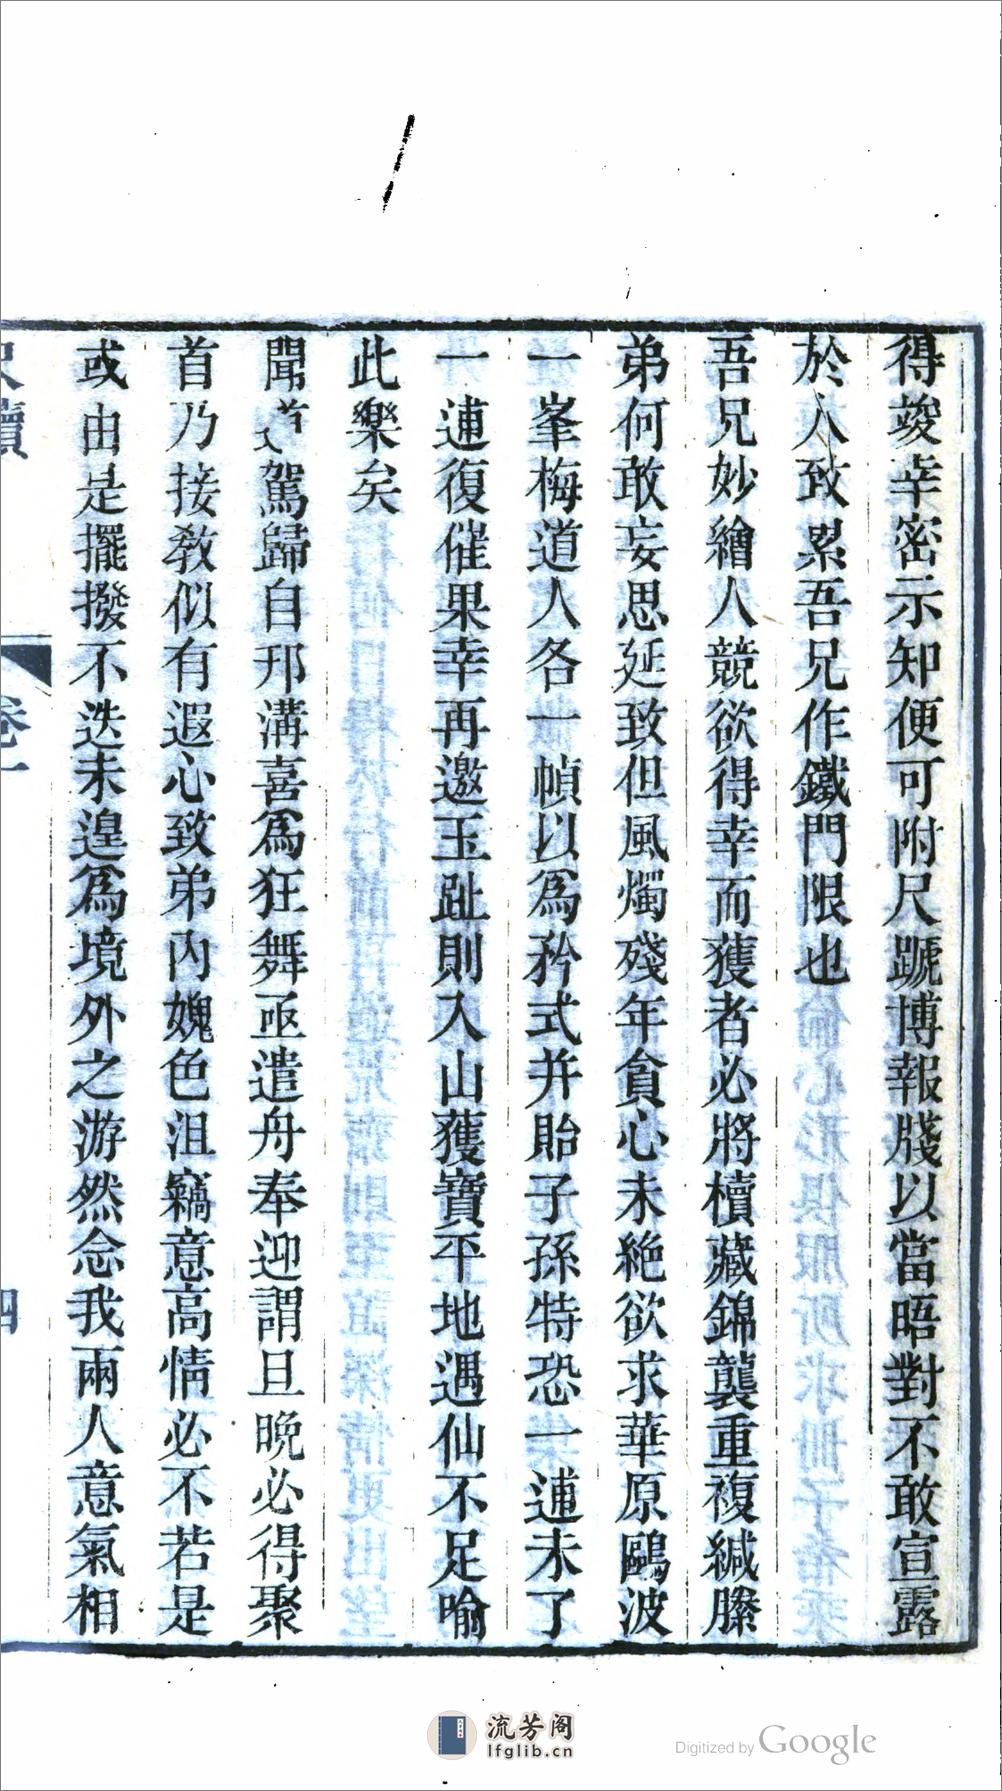 得竣幸密示知便可附尺蹏博報牋以當晤對不敢宣露
於人致累吾兄作鐵門限也
吾兄妙繪人競欲得幸而獲者必將櫝藏錦襲重複緘縢
弟何敢妄思延致但風燭殘年貪心未絕欲求華原鷗波
一峯梅道人各一幀以為矜式并貽子孫特恐一逋未了
一逋復催果幸再邀玉趾則入山獲寶平地遇仙不足喻
此樂矣
聞 駕歸自邗溝喜為狂舞亟遣舟奉迎謂旦晚必得聚
首乃接教似有遐心致弟內媿色沮竊意高情必不若是
或由是擺撥不迭未遑為境外之游然念我兩人意氣相
尺牘
卷一
四
流芳阁
lfglib.cn
Digitized by Google